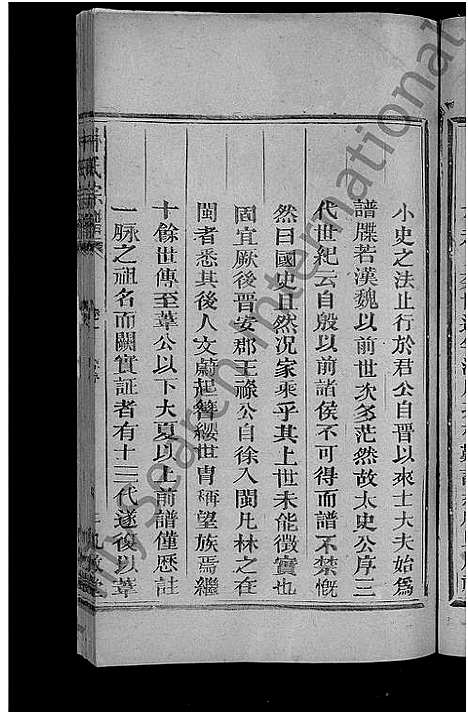 小史之法止行於君公自晉以來士大夫始爲
譜牒若漢魏以前世次多茫然故太史公序三
代世紀云自殷以前諸侯不可得而譜不禁慨
然曰國史且然況家乘乎其上世未能徵實也
固宜厥後晋安郡王祿公自徐入閩凡林之在
閩者悉其後人文蔚起簪纓世胄稱望族焉繼
十餘世傳至葦公以下大夏以上前譜僅歷註
一脉之祖名而關實証者有十三代遂復以葦
林氏宗譜
Family Search International